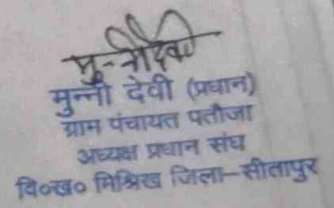 मुन्नीदेवी
मुन्नी देवी (प्रधान)
ग्राम पंचायत पतौजा
अध्यक्ष प्रधान संघ
वि०ख० मिश्रिख जिला-सीतापुर